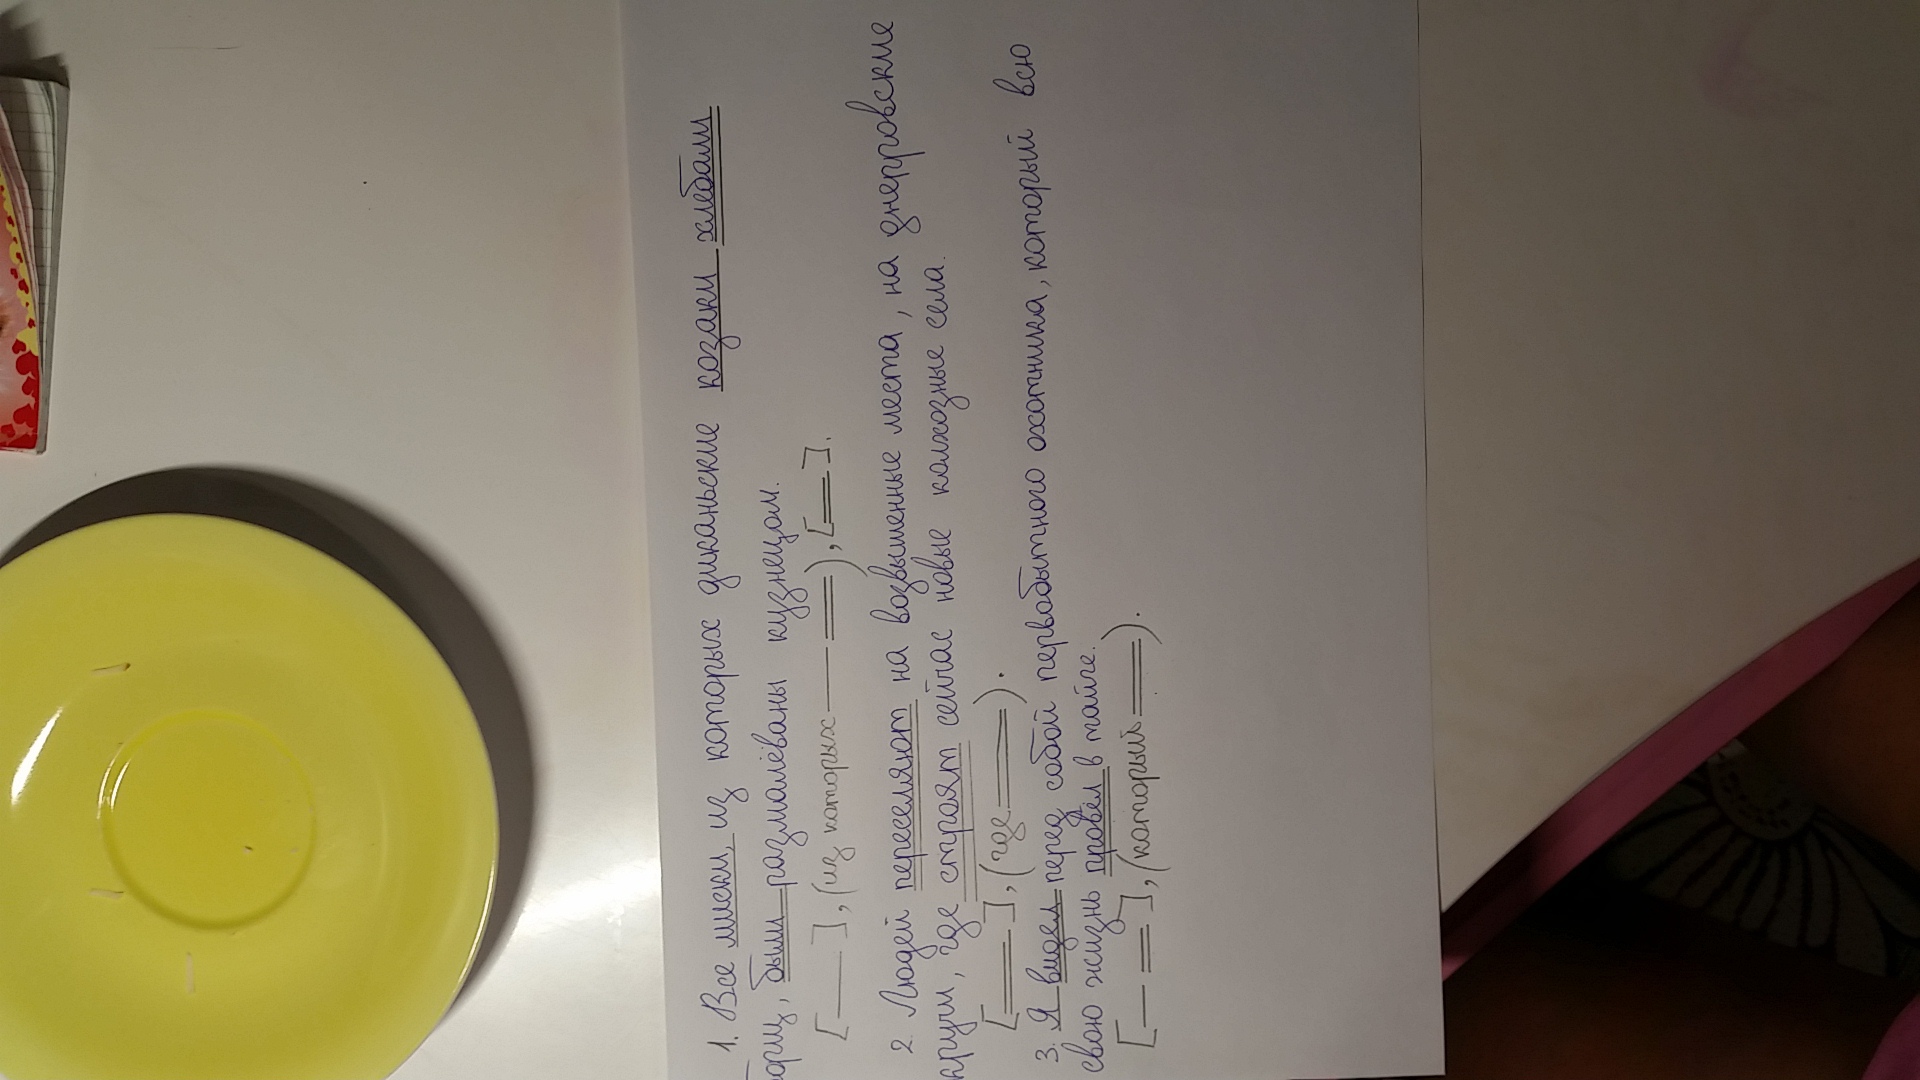 1. Все миски, из которых диканьские козаки хлебали
борщ, были размалёваны кузнецом.
[ — ], (из которых — = ), [ = ].
2. Людей переселяют на возвышенные места, на днепровские
кручи, где строят сейчас новые колхозные села.
[ = ], (где = ).
3. Я видел перед собой первобытного охотника, который всю
свою жизнь провёл в тайге.
[ — = ], (который = ).